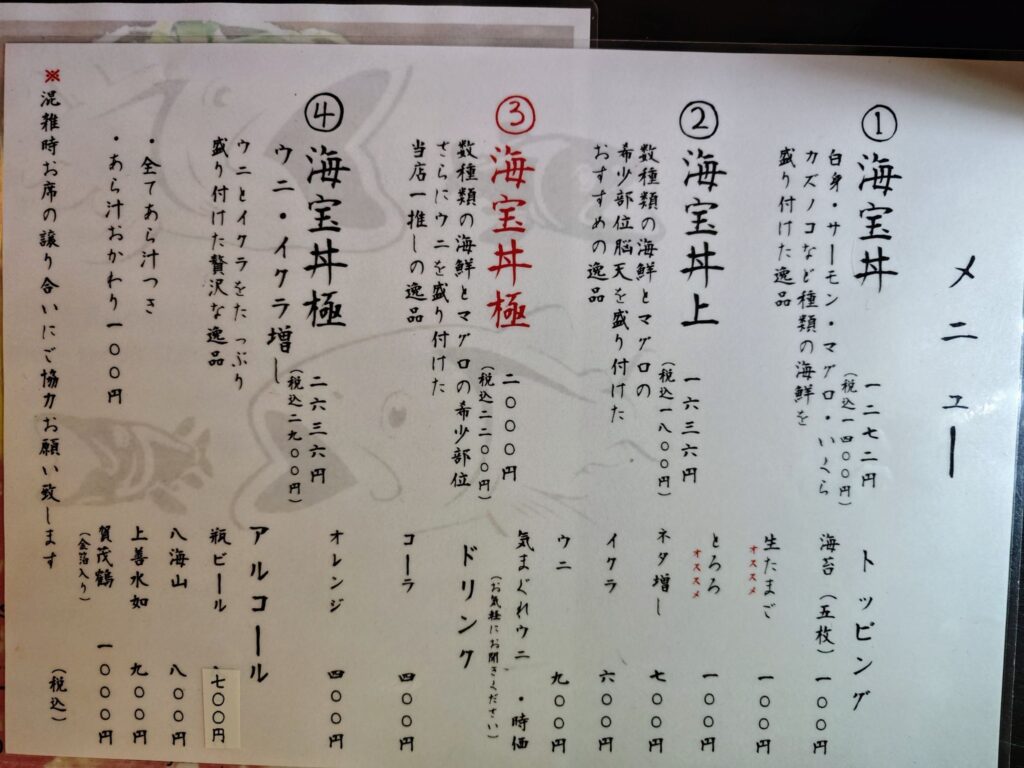 メニュー
① 海宝丼
一二七二円
(税込一四〇〇円)
白身・サーモン・マグロ・いくら
カズノコなど種類の海鮮を
盛り付けた逸品
② 海宝丼上
一六三六円
(税込一八〇〇円)
数種類の海鮮とマグロの
希少部位脳天を盛り付けた
おすすめの逸品
③ 海宝丼極
二〇〇〇円
(税込二二〇〇円)
数種類の海鮮とマグロの希少部位
さらにウニを盛り付けた
当店一推しの逸品
④ 海宝丼極
ウニ・イクラ増し
二六三六円
(税込二九〇〇円)
ウニとイクラをたっぷり
盛り付けた贅沢な逸品
・全てあら汁つき
・あら汁おかわり一〇〇円
※混雑時お席の譲り合いにご協力お願い致します
トッピング
海苔(五枚) 一〇〇円
生たまご オススメ 一〇〇円
とろろ オススメ 一〇〇円
ネタ増し 七〇〇円
イクラ 六〇〇円
ウニ 九〇〇円
気まぐれウニ ・時価
(お気軽にお聞きください)
ドリンク
コーラ 四〇〇円
オレンジ 四〇〇円
アルコール
瓶ビール ・七〇〇円
八海山 八〇〇円
上善水如 九〇〇円
賀茂鶴 一〇〇〇円
(金箔入り)
(税込)